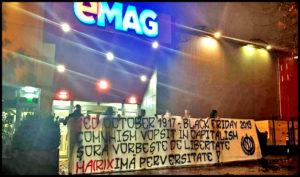 eMAG
RED OCTOBER 1917 - BLACK FRIDAY 2019
COMMUNISM VOPSIT IN CAPITALISM
ȘORA VORBEȘTE DE LIBERTATE
MA(R)XIMĂ PERVERSITATE !